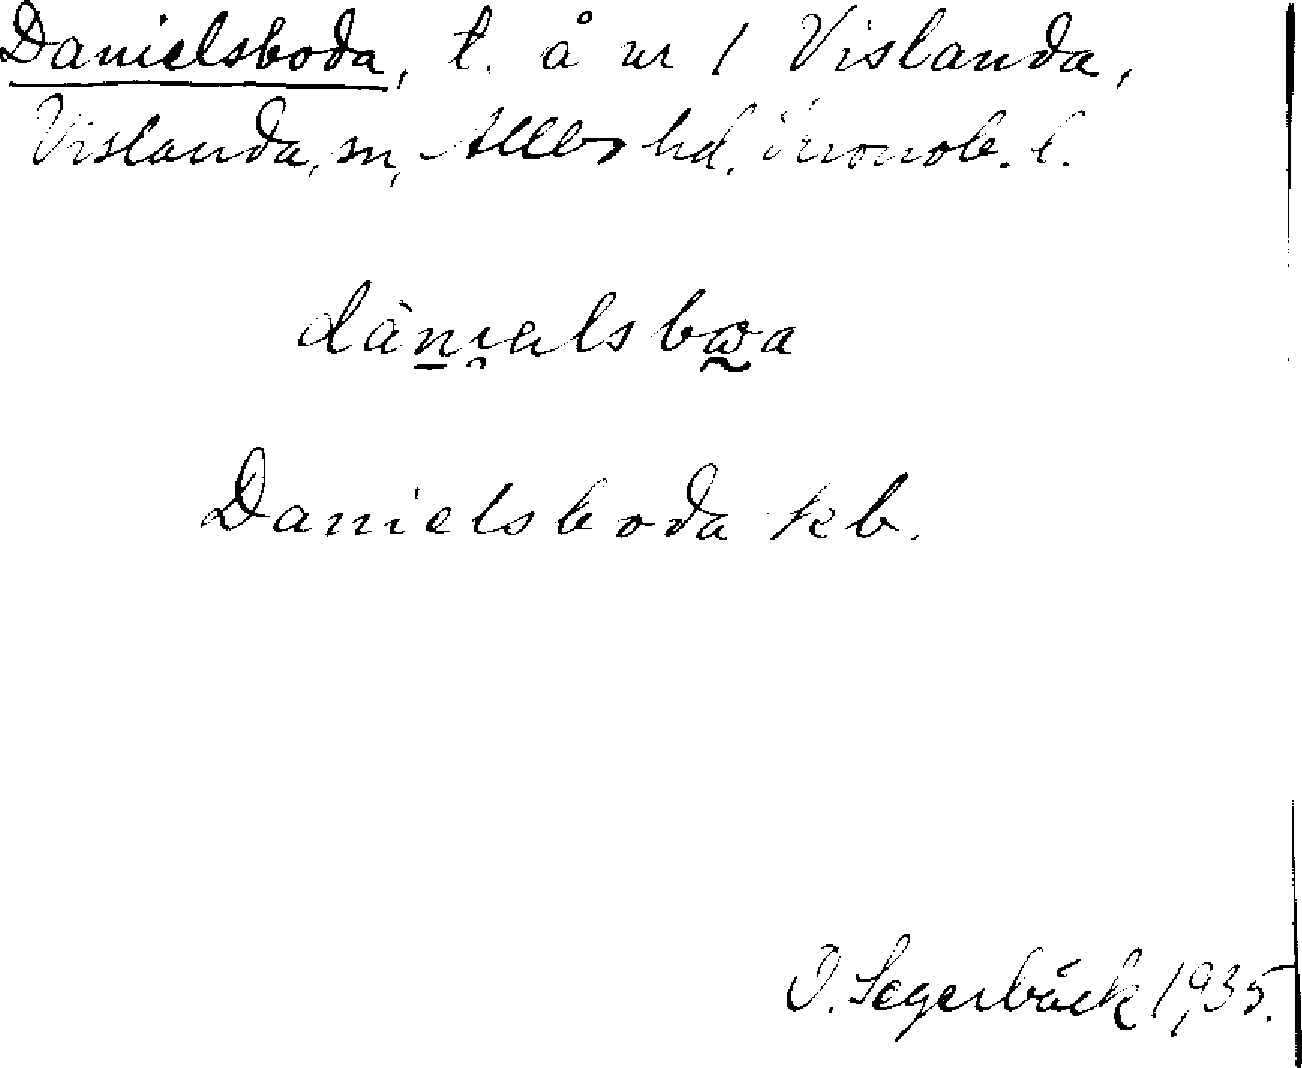 Danielsboda, t. å nr 1 Vislanda,
Vislanda, sn, Allbo hd. Kronob. l.
Danielsboda kb.
O. Segerbäck 1935.